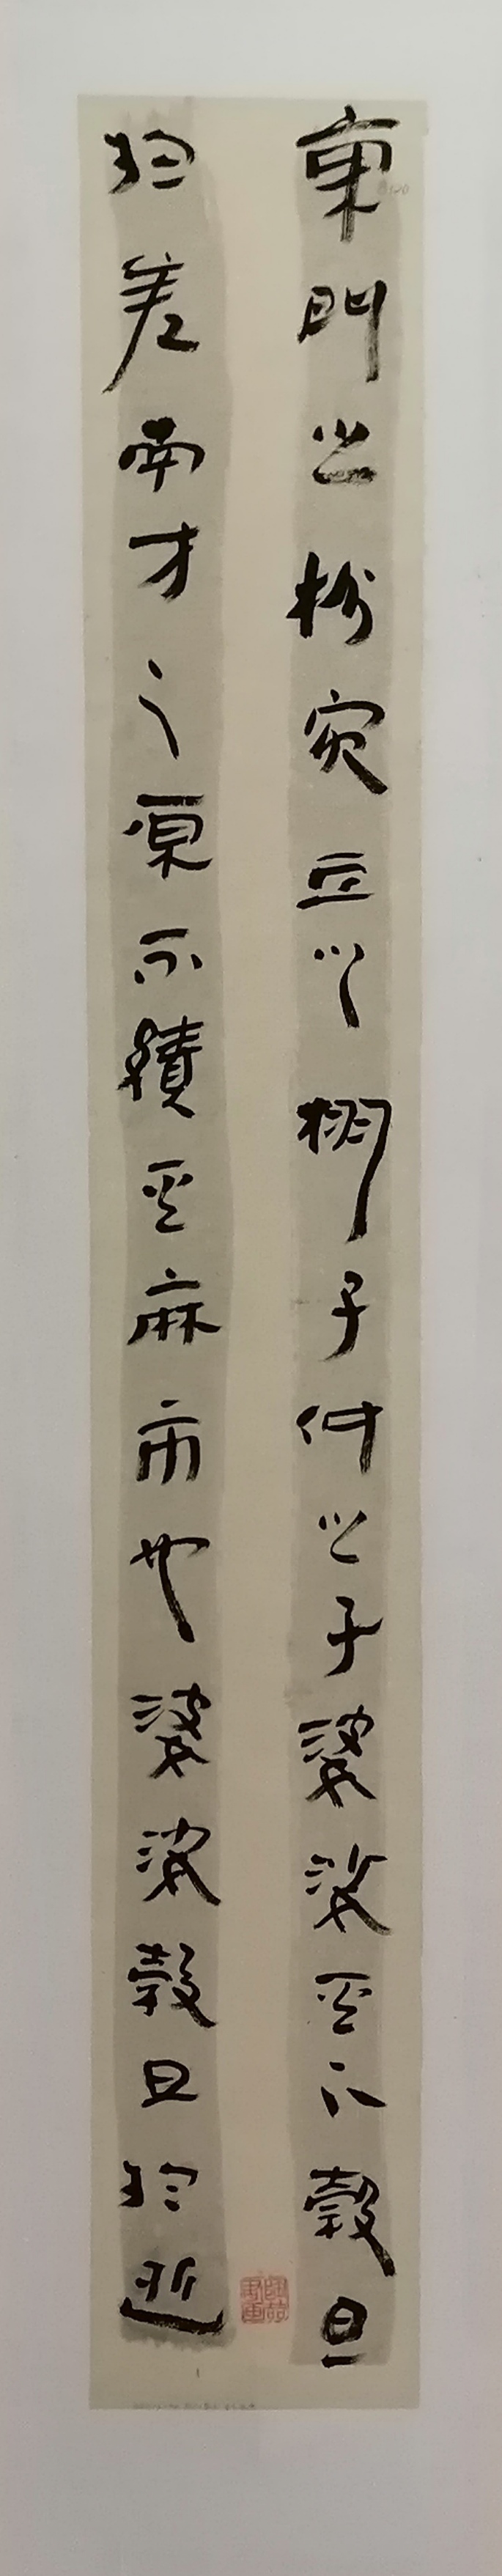 東門之枌宛丘之栩子仲之子婆娑其下穀旦
於差南方之原不績其麻市也婆娑穀旦於逝